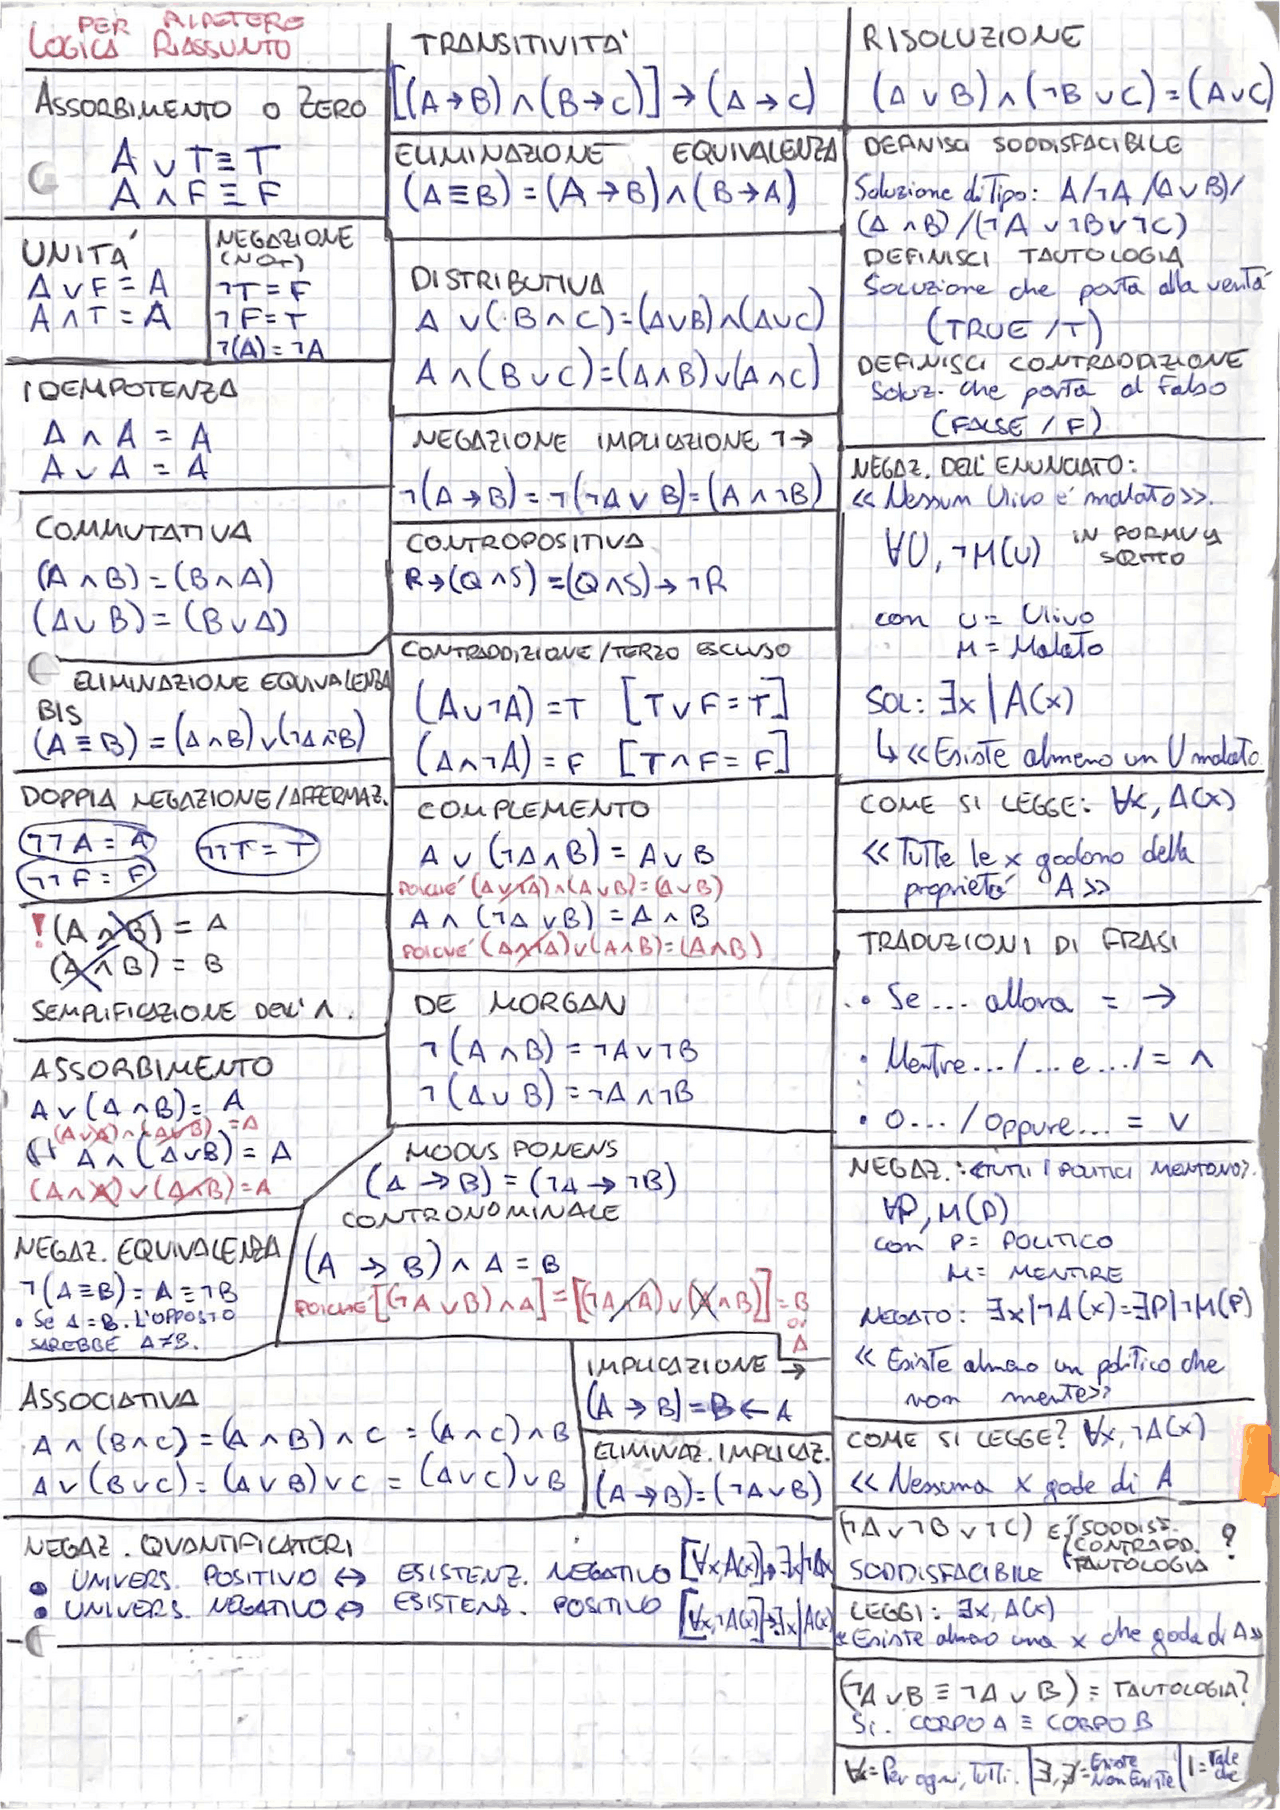 PER RIPETERE
LOGICA RIASSUNTO
ASSORBIMENTO O ZERO
A ∨ T ≡ T
A ∧ F ≡ F
UNITA'
A ∨ F = A
A ∧ T = A
NEGAZIONE
(NOT)
¬T = F
¬F = T
¬(A) = ¬A
IDEMPOTENZA
A ∧ A = A
A ∨ A = A
COMMUTATIVA
(A ∧ B) = (B ∧ A)
(A ∨ B) = (B ∨ A)
ELIMINAZIONE EQUIVALENZA
BIS
(A ≡ B) = (A ∧ B) ∨ (¬A ∧ ¬B)
DOPPIA NEGAZIONE/AFFERMAZ.
¬¬A = A
¬¬T = T
¬¬F = F
! (A ∧ B) = A
(A ∧ B) = B
SEMPLIFICAZIONE DELL' ∧.
ASSORBIMENTO
A ∨ (A ∧ B) = A
(A ∨ A) ∧ (A ∨ B) = A
A ∧ (A ∨ B) = A
(A ∧ A) ∨ (A ∧ B) = A
NEGAZ. EQUIVALENZA
¬(A ≡ B) = A ≡ ¬B
• SE A = B. L'OPPOSTO
SAREBBE A ≠ B.
ASSOCIATIVA
A ∧ (B ∧ C) = (A ∧ B) ∧ C = (A ∧ C) ∧ B
A ∨ (B ∨ C) = (A ∨ B) ∨ C = (A ∨ C) ∨ B
NEGAZ. QUANTIFICATORI
• UNIVERS. POSITIVO ↔ ESISTENZ. NEGATIVO [∀x, A(x)] → ∃x|¬A(x)
• UNIVERS. NEGATIVO ↔ ESISTENZ. POSITIVO [∀x, ¬A(x)] → ∃x|A(x)
TRANSITIVITA'
[(A → B) ∧ (B → C)] → (A → C)
ELIMINAZIONE EQUIVALENZA
(A ≡ B) = (A → B) ∧ (B → A)
DISTRIBUTIVA
A ∨ (B ∧ C) = (A ∨ B) ∧ (A ∨ C)
A ∧ (B ∨ C) = (A ∧ B) ∨ (A ∧ C)
NEGAZIONE IMPLICAZIONE ¬→
¬(A → B) = ¬(¬A ∨ B) = (A ∧ ¬B)
CONTROPOSITIVA
R → (Q ∧ S) = (Q ∧ S) → ¬R
CONTRADDIZIONE/TERZO ESCLUSO
(A ∨ ¬A) = T [T ∨ F = T]
(A ∧ ¬A) = F [T ∧ F = F]
COMPLEMENTO
A ∨ (¬A ∧ B) = A ∨ B
POICHE' (A ∨ ¬A) ∧ (A ∨ B) = (A ∨ B)
A ∧ (¬A ∨ B) = A ∧ B
POICHE' (A ∧ ¬A) ∨ (A ∧ B) = (A ∧ B)
DE MORGAN
¬(A ∧ B) = ¬A ∨ ¬B
¬(A ∨ B) = ¬A ∧ ¬B
MODUS PONENS
(A → B) = (¬A → ¬B)
CONTRONOMINALE
(A → B) ∧ A = B
POICHE' [(¬A ∨ B) ∧ A] = [(¬A ∧ A) ∨ (A ∧ B)] = B
O
A
IMPLICAZIONE →
(A → B) = B ← A
ELIMINAZ. IMPLICAZ.
(A → B) = (¬A ∨ B)
RISOLUZIONE
(A ∨ B) ∧ (¬B ∨ C) = (A ∨ C)
DEFINISCI SODDISFACIBILE
Soluzione di Tipo: A/¬A/(A ∨ B)/
(A ∧ B)/(¬A ∨ ¬B ∨ ¬C)
DEFINISCI TAUTOLOGIA
Soluzione che porta alla verità
(TRUE / T)
DEFINISCI CONTRADDIZIONE
Soluz. che porta al Falso
(FALSE / F)
NEGAZ. DELL' ENUNCIATO:
«Nessun Ulivo è malato».
∀U, ¬M(U) IN FORMULA
SCRITTO
con U = Ulivo
M = Malato
SOL: ∃x | A(x)
↳ «Esiste almeno un U malato.
COME SI LEGGE: ∀x, A(x)
«Tutte le x godono della
proprietà A»
TRADUZIONI DI FRASI
• Se ... allora = →
• Mentre.../... e .../ = ∧
• O.../Oppure... = ∨
NEGAZ.: «TUTTI I POLITICI MENTONO».
∀P, M(P)
con P = POLITICO
M = MENTIRE
NEGATO: ∃x|¬A(x) = ∃P|¬M(P)
«Esiste almeno un politico che
non mente»
COME SI LEGGE? ∀x, ¬A(x)
«Nessuna x gode di A
(¬A ∨ ¬B ∨ ¬C) E' SODDISF.
CONTRADD. ?
TAUTOLOGIA
SODDISFACIBILE
LEGGI: ∃x, A(x)
«Esiste almeno una x che goda di A»
(¬A ∨ B ≡ ¬A ∨ B) = TAUTOLOGIA?
Si. CORPO A ≡ CORPO B
∀x = Per ogni, Tutti. | ∃, ∄ = Esiste Non Esiste | | = Tale che